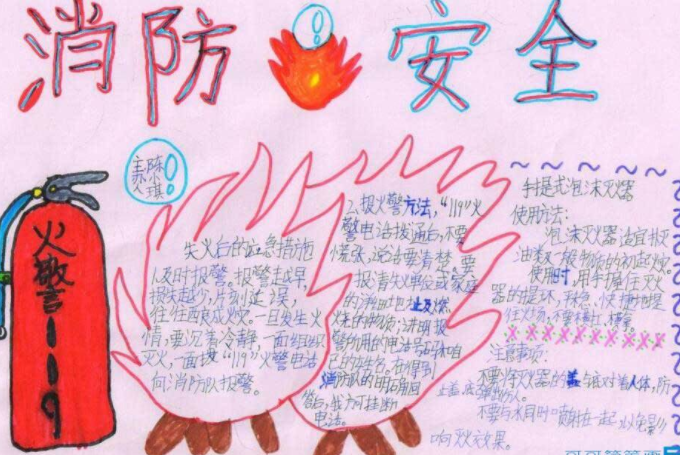 消防安全
陈小琪
火警119
失火后的应急措施
1.及时报警。报警越早,
损失越少,片刻延误,
往往酿成火灾。一旦发生火
情,要沉着冷静,一面组织
灭火,一面拨“119”火警电话
向消防队报警。
2.报火警方法,“119”火
警电话接通后,不要
慌张,说话要清楚,要
报清失火单位或家庭
的详细地址及燃
烧的物质;讲明报
警所用的电话号码和自
己的姓名。在得到
消防队的明确回
答后,我方可挂断
电话。
手提式泡沫灭火器
使用方法:
泡沫灭火器适宜扑灭
油类及一般物质的初起火灾。
使用时,用手握住灭火
器的提环,平稳、快捷地提
往火场,不要横扛、横拿。
注意事项:
不要将灭火器的盖与底对着人体,防
止盖底弹出伤人。
不要与水同时喷射在一起,以免影
响灭火效果。